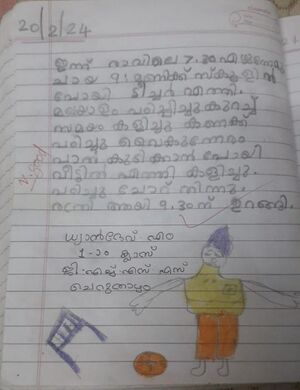 20/2/24
ഇന്ന് രാവിലെ 7.30 എഴുന്നേറ്റു
ചായ 9: മണിക്ക് സ്കൂളിൽ
പോയി ടീച്ചർ എത്തി.
മലയാളം പഠിച്ചിച്ചു കുറച്ച്
സമയം കളിച്ചു കണക്ക്
പഠിച്ചു വൈകുന്നേരം
പാൽ കുടിക്കാൻ പോയി
വീട്ടിൽ എത്തി കളിച്ചു.
പഠിച്ചു ചോറ് നിന്നു.
രാത്രി ആയി 9.30ന് ഉറങ്ങി.
ധ്യാൻദേവ് എം
1-ാം ക്ലാസ്
ജി.എച്ച്.എസ് എസ്
ചെറുതാഴം